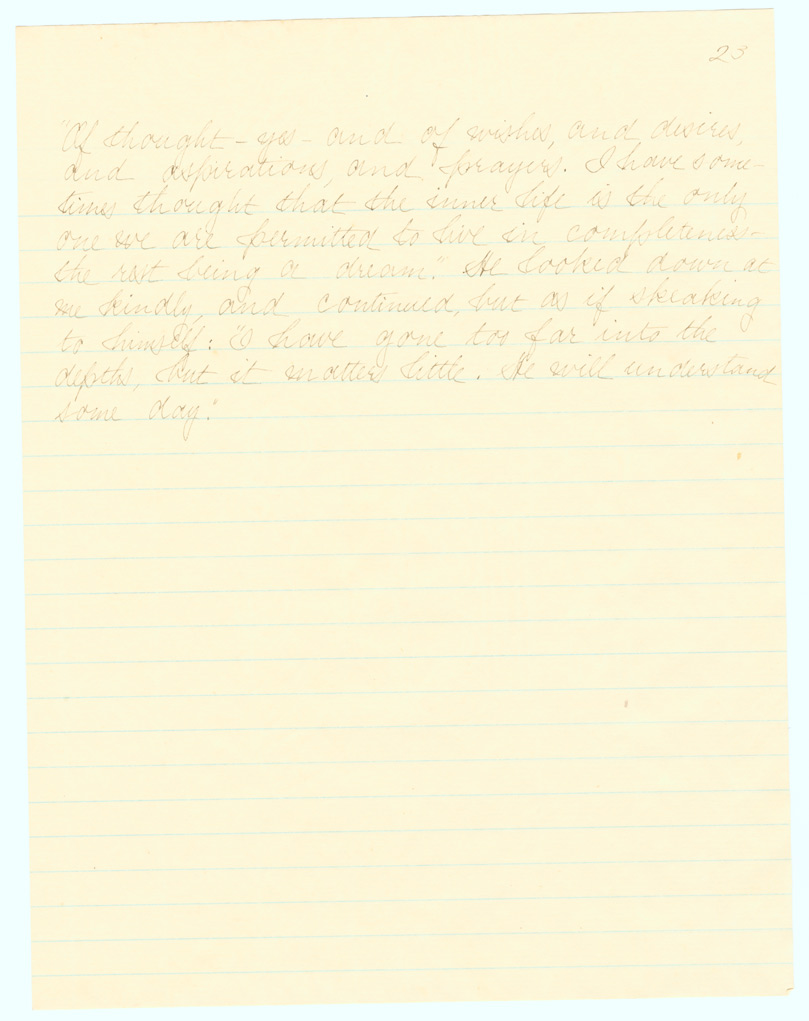 23
"Of thought – yes – and of wishes, and desires,
and aspirations, and prayers. I have some-
times thought that the inner life is the only
one we are permitted to live in completeness –
the rest being a dream." He looked down at
me kindly, and continued, but as if speaking
to himself: "I have gone too far into the
depths, but it matters little. He will understand
some day."